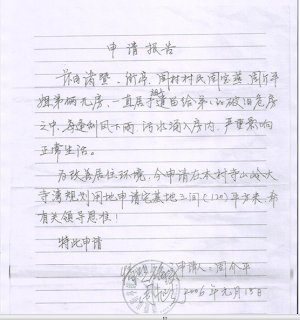 申请报告
村民周宝英周介平
姐弟俩无房，一直居于遗留给弟的破旧危房
之中，每逢刮风下雨，污水涌入房内，严重影响
正常生活。
为改善居住环境，今申请在本村寺山岭大
寺湾规划用地申请宅基地三间(120)平方米，希
有关领导恩准！
特此申请
申请人：周介平
2006年元月15日